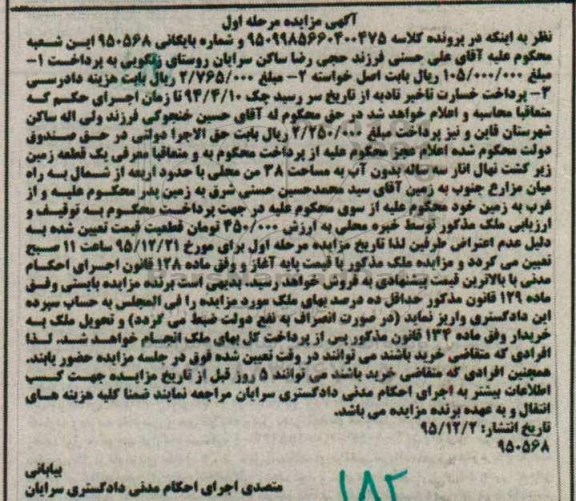 آگهی مزایده مرحله اول
نظر به اینکه در پرونده کلاسه ۹۵۰۹۹۸۵۶۶۰۴۰۰۴۷۵ و شماره بایگانی ۹۵۰۵۶۸ این شعبه
محکوم علیه آقای علی حسنی فرزند حجی رضا ساکن سرایان روستای زنگویی به پرداخت ۱-
مبلغ ۱۰۵/۰۰۰/۰۰۰ ریال بابت اصل خواسته ۲- مبلغ ۲/۷۶۵/۰۰۰ ریال بابت هزینه دادرسی
۳- پرداخت خسارت تاخیر تادیه از تاریخ سر رسید چک ۹۴/۴/۱۰ تا زمان اجرای حکم که
متعاقبا محاسبه و اعلام خواهد شد در حق محکوم له آقای حسین خنجوکی فرزند ولی اله ساکن
شهرستان قاین و نیز پرداخت مبلغ ۲/۲۵۰/۰۰۰ ریال بابت حق الاجرا دولتی در حق صندوق
دولت محکوم شده اعلام عجز محکوم علیه از پرداخت محکوم به و متعاقبا معرفی یک قطعه زمین
زیر کشت نهال انار سه ساله بدون آب به مساحت ۳۸ من محلی با حدود اربعه از شمال به راه
میان مزارع جنوب به زمین آقای سید محمدحسین حسنی شرق به زمین پدر محکوم علیه و از
غرب به زمین خود محکوم علیه از سوی محکوم علیه در جهت پرداخت محکوم به توقیف و
ارزیابی ملک مذکور توسط خبره محلی به ارزش ۳۵۰/۰۰۰ تومان قطعیت قیمت تعیین شده به
دلیل عدم اعتراض طرفین لذا تاریخ مزایده مرحله اول برای مورخ ۹۵/۱۲/۲۱ ساعت ۱۱ صبح
تعیین می گردد و مزایده ملک مذکور با قیمت پایه آغاز و وفق ماده ۱۲۸ قانون اجرای احکام
مدنی با بالاترین قیمت پیشنهادی به فروش خواهد رسید. بدیهی است برنده مزایده بایستی وفق
ماده ۱۲۹ قانون مذکور حداقل ده درصد بهای ملک مورد مزایده را فی المجلس به حساب سپرده
این دادگستری واریز نماید (در صورت انصراف به نفع دولت ضبط می گردد) و تحویل ملک به
خریدار وفق ماده ۱۳۴ قانون مذکور پس از پرداخت کل بهای ملک انجام خواهد شد. لذا
افرادی که متقاضی خرید باشند می توانند در وقت تعیین شده فوق در جلسه مزایده حضور یابند.
همچنین افرادی که متقاضی خرید باشند می توانند ۵ روز قبل از تاریخ مزایده جهت کسب
اطلاعات بیشتر به اجرای احکام مدنی دادگستری سرایان مراجعه نمایند ضمنا کلیه هزینه های
انتقال و به عهده برنده مزایده می باشد.
تاریخ انتشار: ۹۵/۱۲/۲
۹۵۰۵۶۸
بیابانی
متصدی اجرای احکام مدنی دادگستری سرایان
۱۸۲